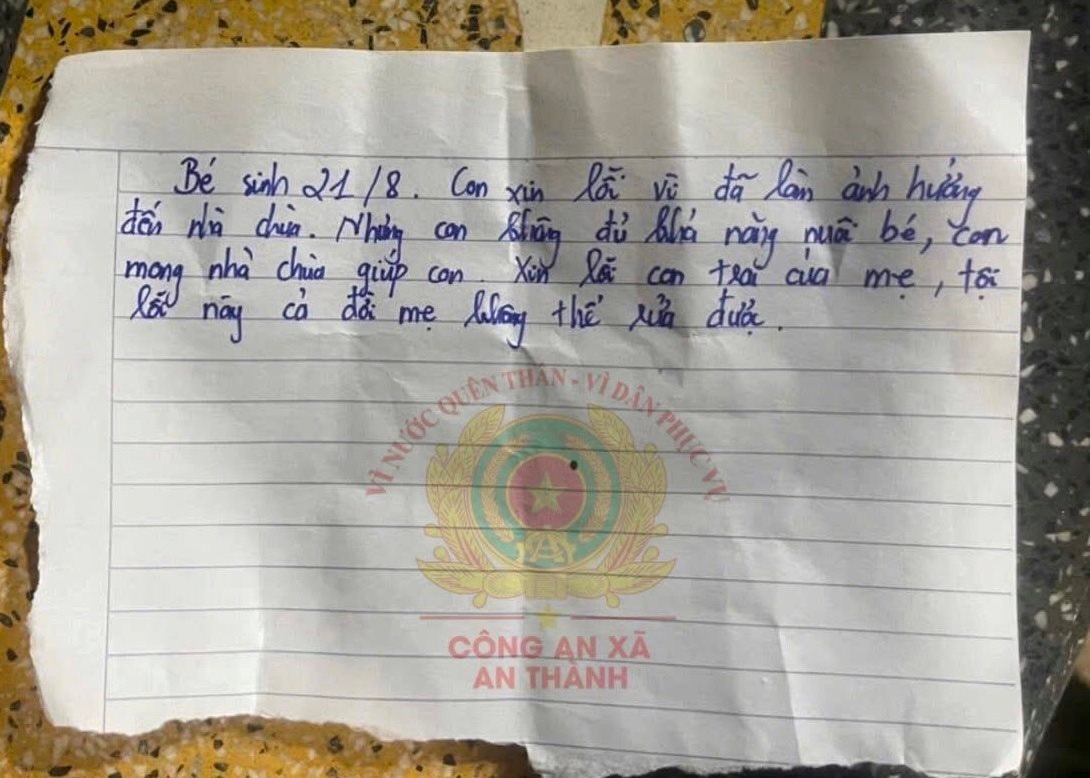 Bé sinh 21/8. Con xin lỗi vì đã làm ảnh hưởng
đến nhà chùa. Nhưng con không đủ khả năng nuôi bé, con
mong nhà chùa giúp con. Xin lỗi con trai của mẹ, tội
lỗi này cả đời mẹ không thể rửa được.
VÌ NƯỚC QUÊN THÂN - VÌ DÂN PHỤC VỤ
CÔNG AN XÃ
AN THÀNH